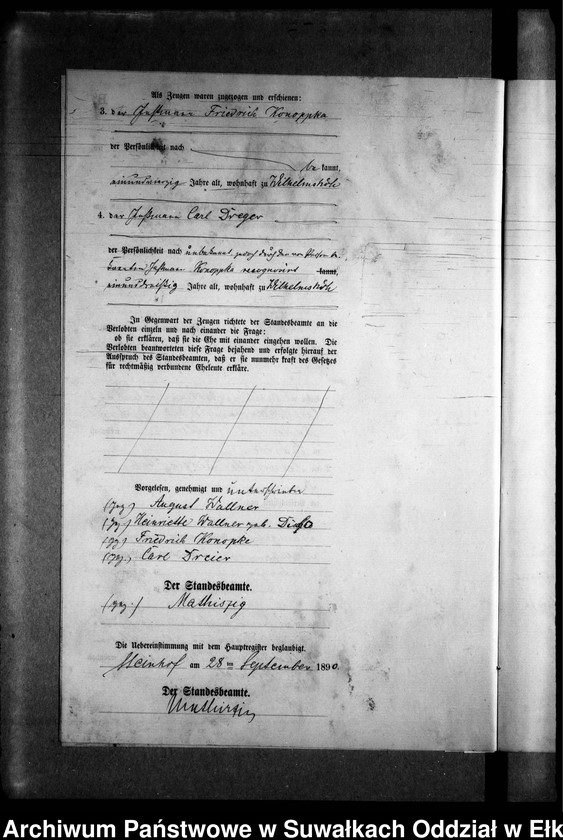 Als Zeugen waren zugezogen und erschienen:
3. der Instmann Friedrich Konoppka
der Persönlichkeit nach
bekannt,
Jahre alt, wohnhaft zu Wilhelmshöh
4. der Instmann Carl Dreger
der Persönlichkeit nach unbekannt, jedoch durch den von Person be-
kannten Instmann Konoppka recognoscirt kannt,
einunddreißig Jahre alt, wohnhaft zu Wilhelmshöh
In Gegenwart der Zeugen richtete der Standesbeamte an die
Verlobten einzeln und nach einander die Frage:
ob sie erklären, daß sie die Ehe mit einander eingehen wollen. Die
Verlobten beantworteten diese Frage bejahend und erfolgte hierauf der
Ausspruch des Standesbeamten, daß er sie nunmehr kraft des Gesetzes
für rechtmäßig verbundene Eheleute erkläre.
Vorgelesen, genehmigt und unterschrieben
(gez.) August Wallner
(gez.) Heinriette Wallner geb.
(gez.) Friedrich Konopke
(gez.) Carl Dreier
Der Standesbeamte.
(gez.) Mathiszig
Die Uebereinstimmung mit dem Hauptregister beglaubigt.
Steinhof am 28 ten September 1890.
Der Standesbeamte.
Mathiszig
Archiwum Państwowe w Suwałkach Oddział w Ełk